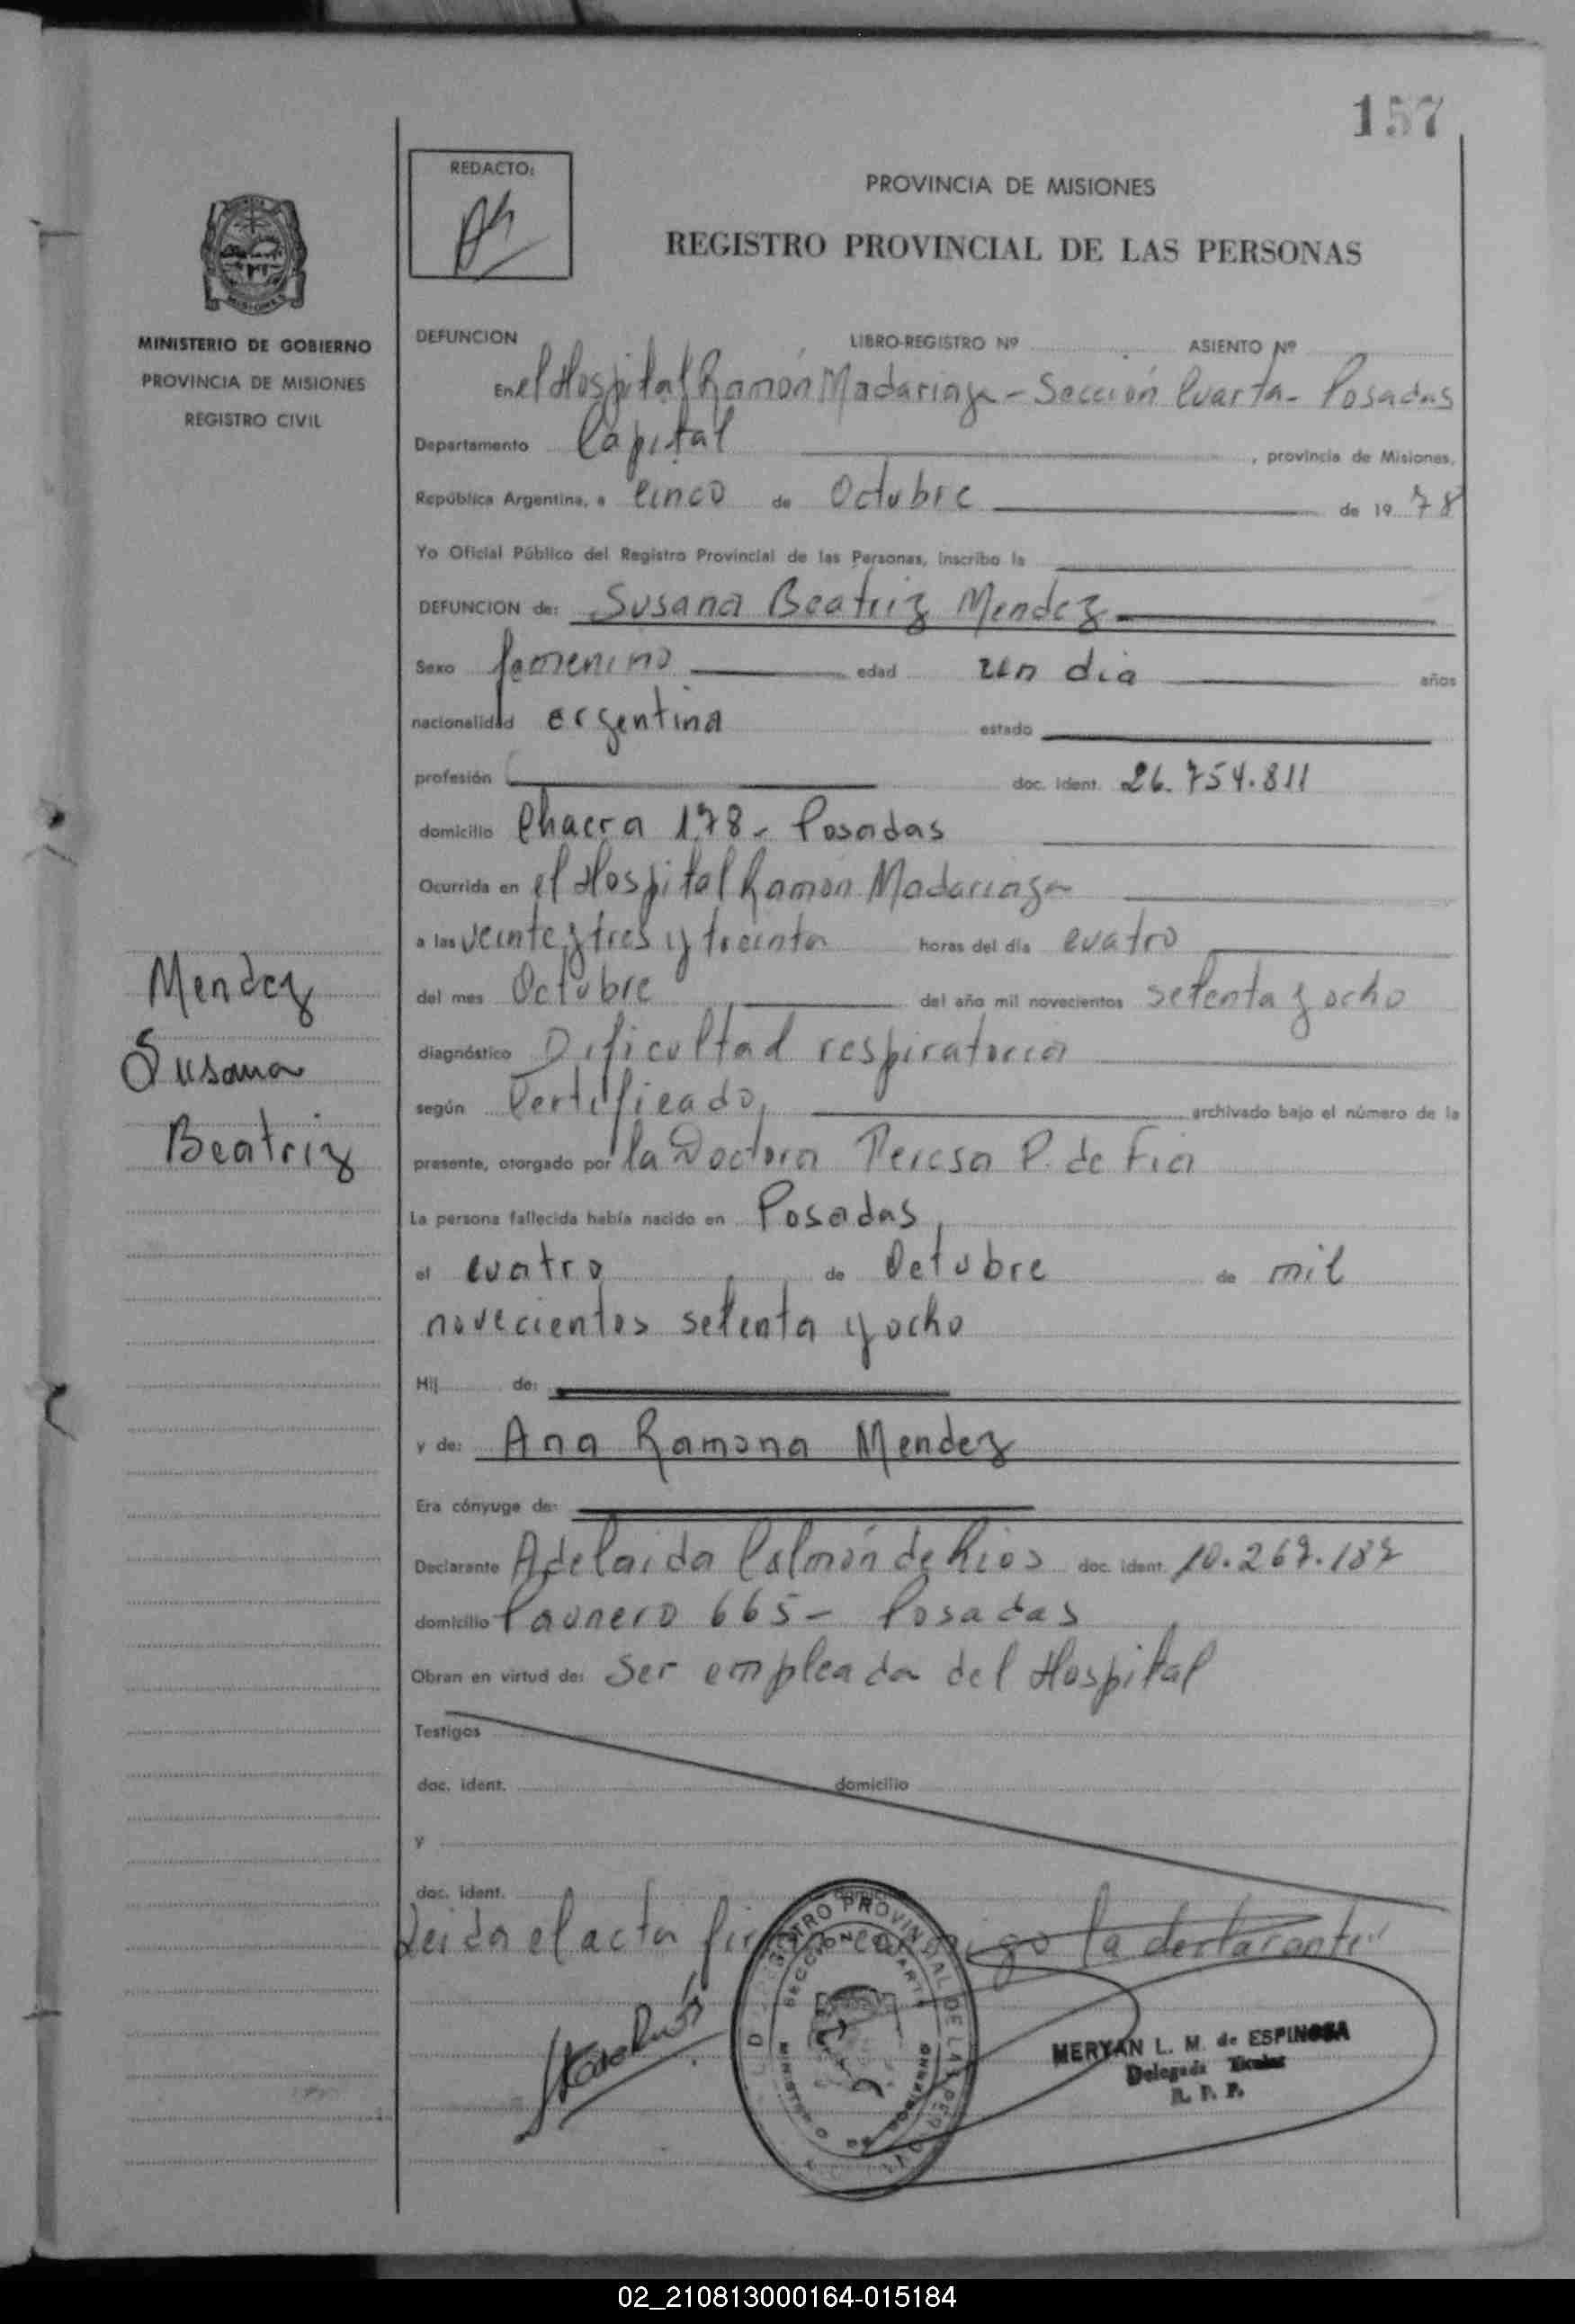 157
REDACTO:
PROVINCIA DE MISIONES
REGISTRO PROVINCIAL DE LAS PERSONAS
MINISTERIO DE GOBIERNO
PROVINCIA DE MISIONES
REGISTRO CIVIL
DEFUNCION LIBRO-REGISTRO Nº ASIENTO Nº
En el Hospital Ramón Madariaga - Sección Cuarta - Posadas
Departamento Capital, provincia de Misiones,
República Argentina, a cinco de Octubre de 1978
Yo Oficial Público del Registro Provincial de las Personas, inscribo la
DEFUNCION de: Susana Beatriz Mendez
Sexo femenino edad un dia años
nacionalidad argentina estado
profesión doc. ident. 26.754.811
domicilio Chacra 178 - Posadas
Ocurrida en el Hospital Ramón Madariaga
a las veinte y tres y treinta horas del día cuatro
del mes Octubre del año mil novecientos setenta y ocho
diagnóstico Dificultad respiratoria
según Certificado, archivado bajo el número de la
presente, otorgado por la Doctora Teresa P. de Fia
La persona fallecida había nacido en Posadas,
el cuatro de Octubre de mil
novecientos setenta y ocho
Hij de:
y de: Ana Ramona Mendez
Era cónyuge de:
Declarante Adelaida Colmán de Rios doc. ident. 10.269.189
domicilio Paunero 665 - Posadas
Obran en virtud de: Ser empleada del Hospital
Testigos
doc. ident. domicilio
y
doc. ident. domicilio
Leida el acta firma conmigo la declarante"
Mendez
Susana
Beatriz
MERYAN L. M. de ESPINOSA
Delegada Titular
R. P. P.
02_210813000164-015184